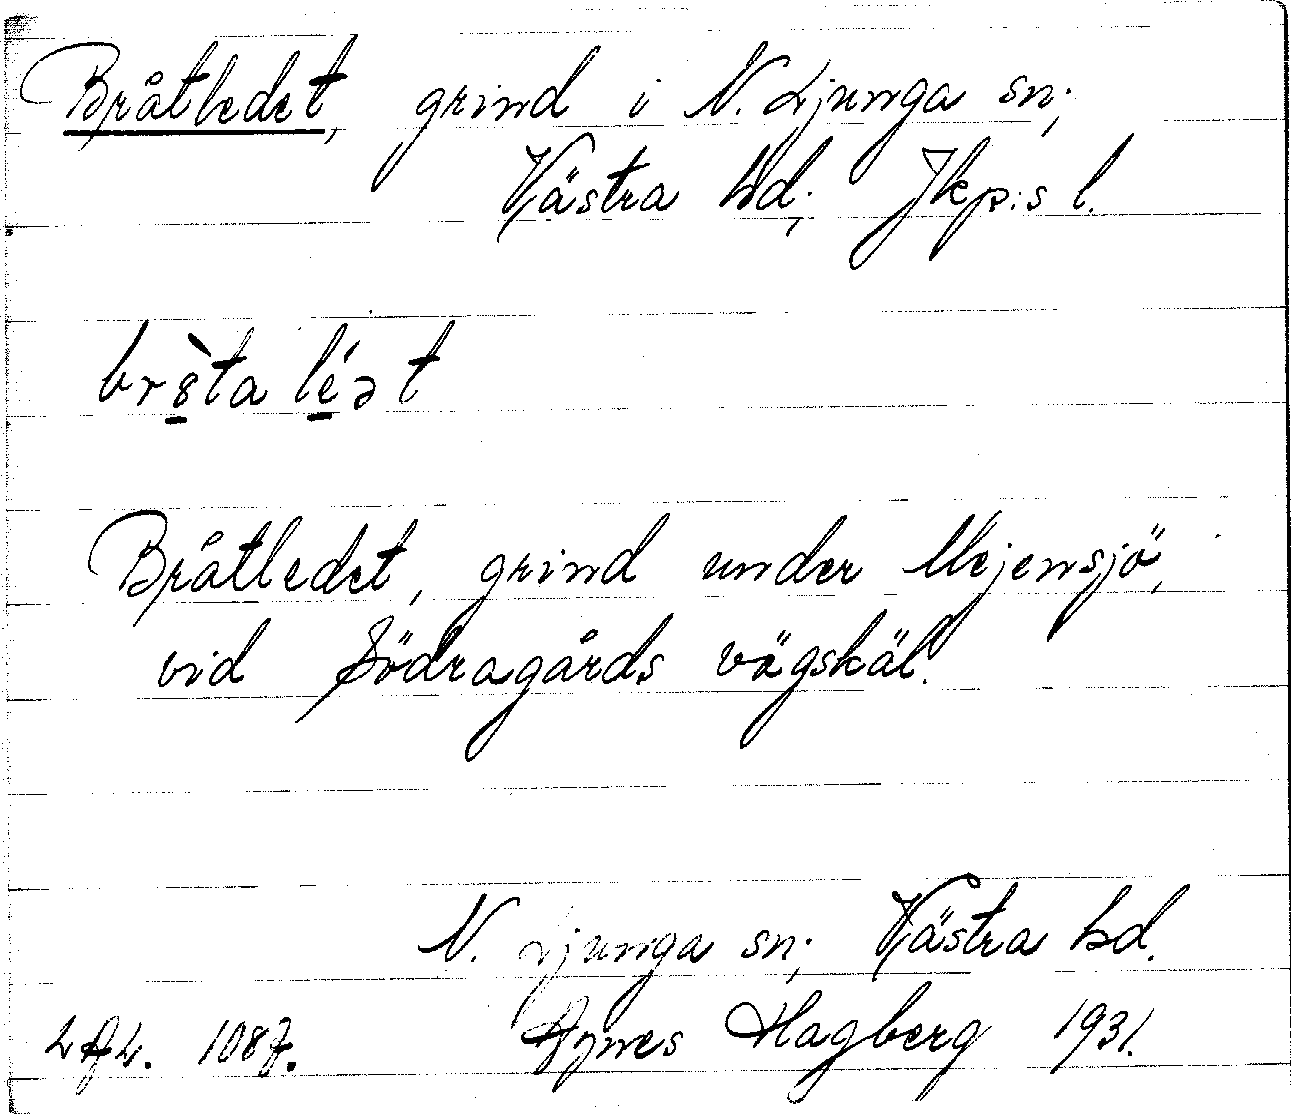 Bråtledet, grind i N. Ljunga sn;
Västra hd; Jkp:s l.
br8̀ta léət
Bråtledet, grind under Mejensjö,
vid Södragårds vägskäl.
N. Ljunga sn; Västra hd.
Agnes Hagberg 1931.